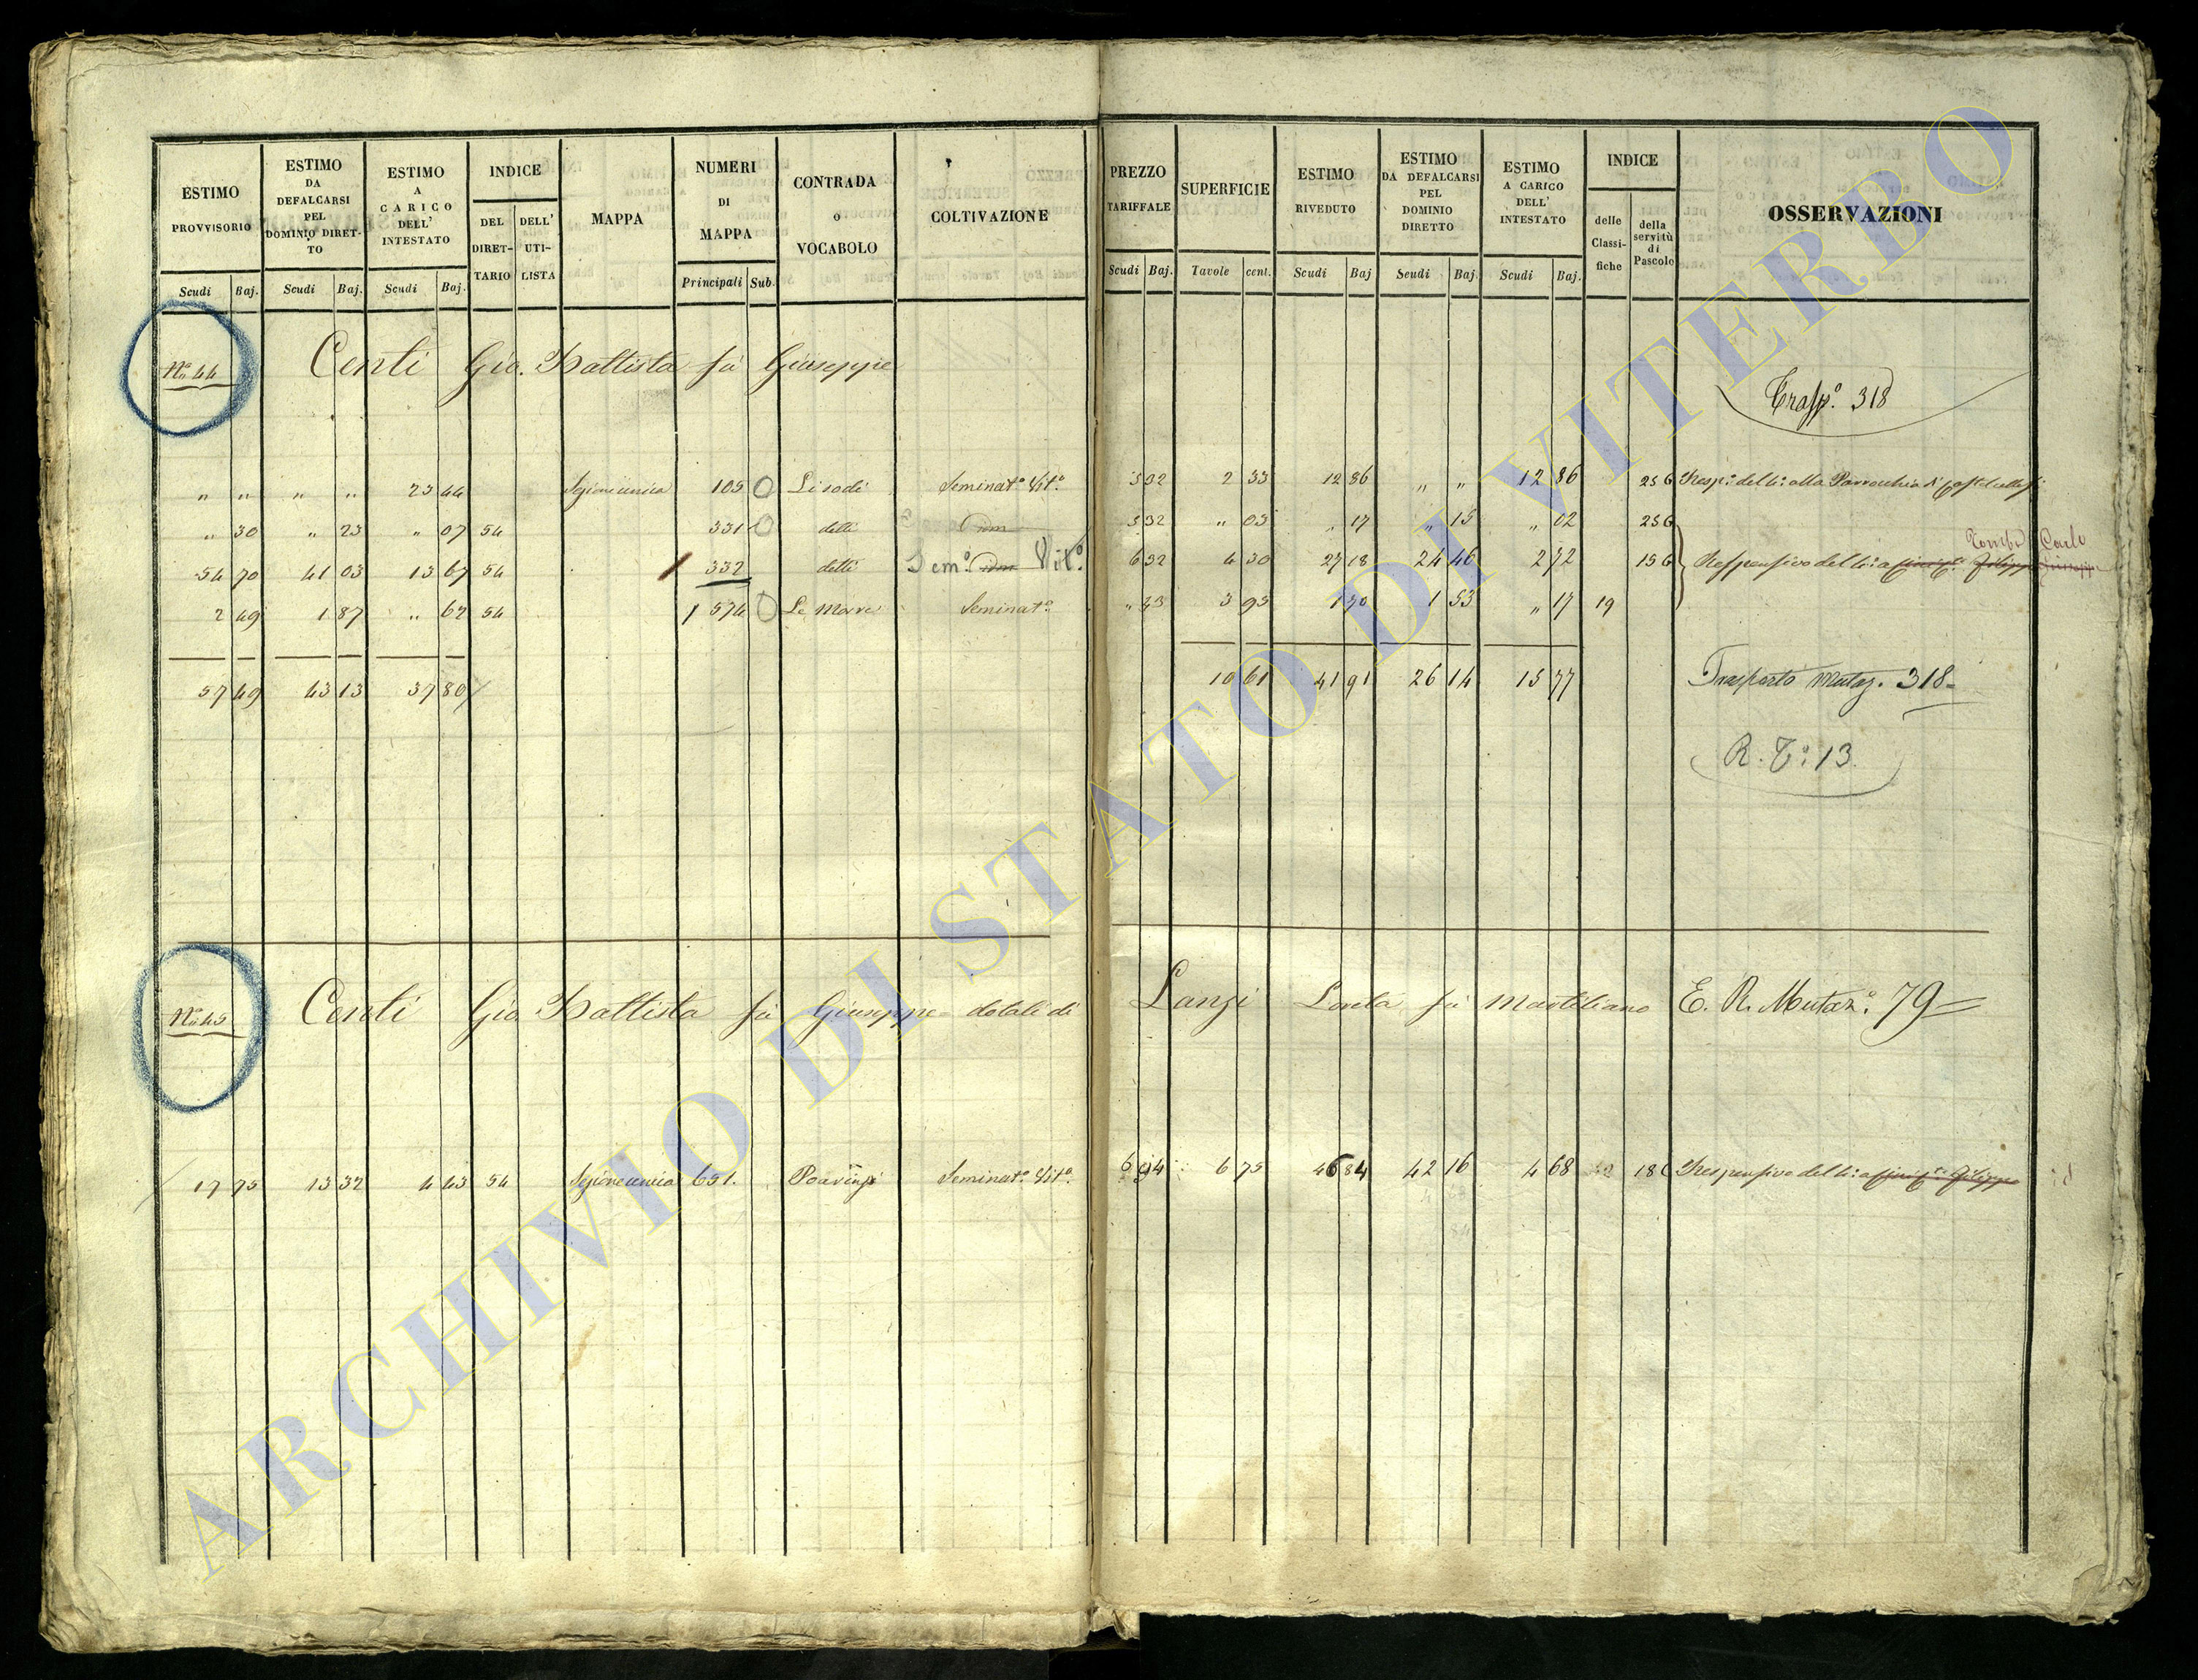 ESTIMO PROVVISORIO
Scudi Baj.
ESTIMO DA DEFALCARSI PEL DOMINIO DIRET-TO
Scudi Baj.
ESTIMO A CARICO DELL' INTESTATO
Scudi Baj.
INDICE
DEL DIRET-TARIO
DELL' UTI-LISTA
MAPPA
NUMERI DI MAPPA
Principali Sub.
CONTRADA o VOCABOLO
COLTIVAZIONE
PREZZO TARIFFALE
Scudi Baj.
SUPERFICIE
Tavole cent.
ESTIMO RIVEDUTO
Scudi Baj
ESTIMO DA DEFALCARSI PEL DOMINIO DIRETTO
Scudi Baj.
ESTIMO A CARICO DELL' INTESTATO
Scudi Baj.
INDICE
delle Classi-fiche
della servitù di Pascolo
OSSERVAZIONI
No. 44 Conti Gio. Battista fù Giuseppe
Trasp.o 318
" " " " 23 44 Sezione unica 105 0 Li sodi Seminat.o Vit.o 5 52 2 33 12 86 " " 12 86 25 6
" 30 " 23 " 07 54 331 0 detti 5 52 " 03 " 17 " 15 " 02 25 6
54 70 41 03 13 67 54 1 332 detti Sem.o Vit.o 6 32 4 30 27 18 24 46 2 72 15 6 Responsivo del 4:a Carlo
2 49 1 87 " 62 54 1 574 0 Le Morre Seminat.o 3 95 1 70 1 53 " 17 19
57 49 43 13 37 80 10 61 41 91 26 14 15 77 Trasporto Mutaz. 318
R. T: 13.
No. 45 Conti Gio Battista fù Giuseppe dotali di Lanzi Loreta fù Martiliano E. R. Mutaz.e 79
17 75 13 32 4 43 54 Sezione unica 651. Seminat.o Vit.o 6 94 6 75 46 84 42 16 4 68 18 6 Responsivo del 4:a
ARCHIVIO DI STATO DI VITERBO